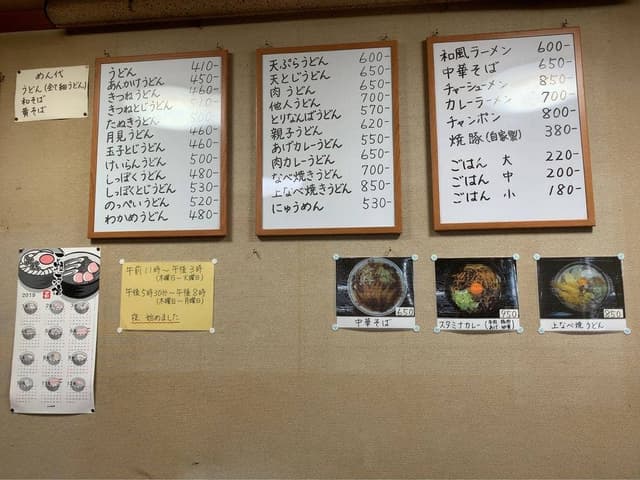 めん代
うどん(全て細うどん)
和そば
黄そば
うどん 410-
あんかけうどん 450-
きつねうどん 460-
きつねとじうどん 510-
たぬきうどん 500-
月見うどん 460-
玉子とじうどん 460-
けいらんうどん 500-
しっぽくうどん 480-
しっぽくとじうどん 530-
のっぺいうどん 520-
わかめうどん 480-
天ぷらうどん 600-
天とじうどん 650-
肉うどん 650-
他人うどん 700-
とりなんばうどん 570-
親子うどん 620-
あげカレーうどん 550-
肉カレーうどん 650-
なべ焼きうどん 700-
上なべ焼きうどん 850-
にゅうめん 530-
和風ラーメン 600-
中華そば 650-
チャーシューメン 850-
カレーラーメン 700-
チャンポン 800-
焼豚(自家製) 380-
ごはん 大 220-
ごはん 中 200-
ごはん 小 180-
2019
午前11時〜午後3時
(木曜日〜火曜日)
午後5時30分〜午後8時
(木曜日〜月曜日)
夜 始めました
650
中華そば
950
スタミナカレー
850
上なべ焼うどん